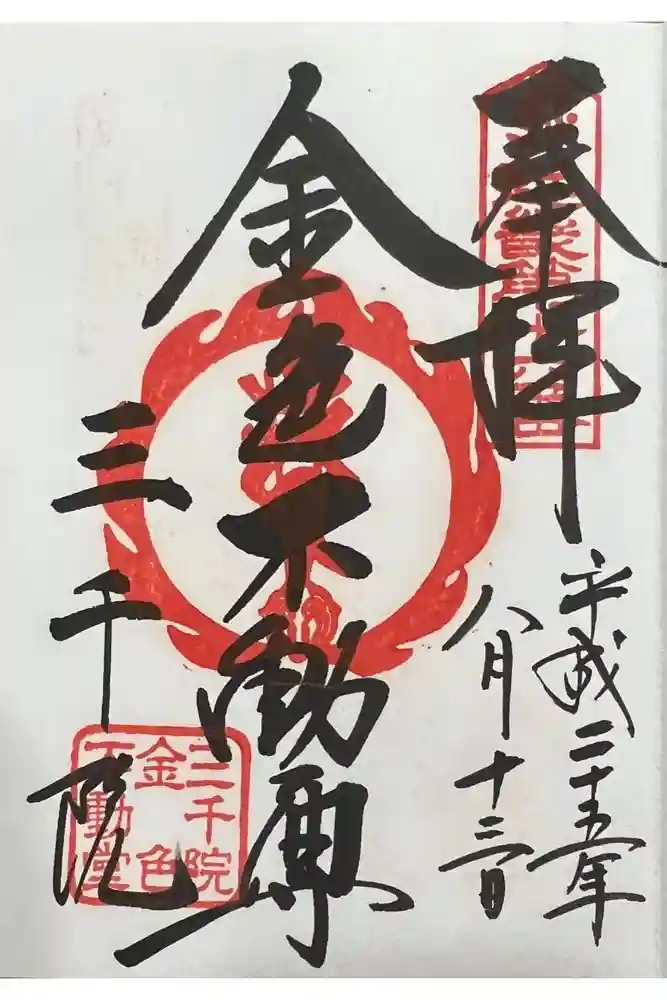 奉拝
平成二十五年
八月十三日
金色不動尊
三千院
三千院
金色
不動堂